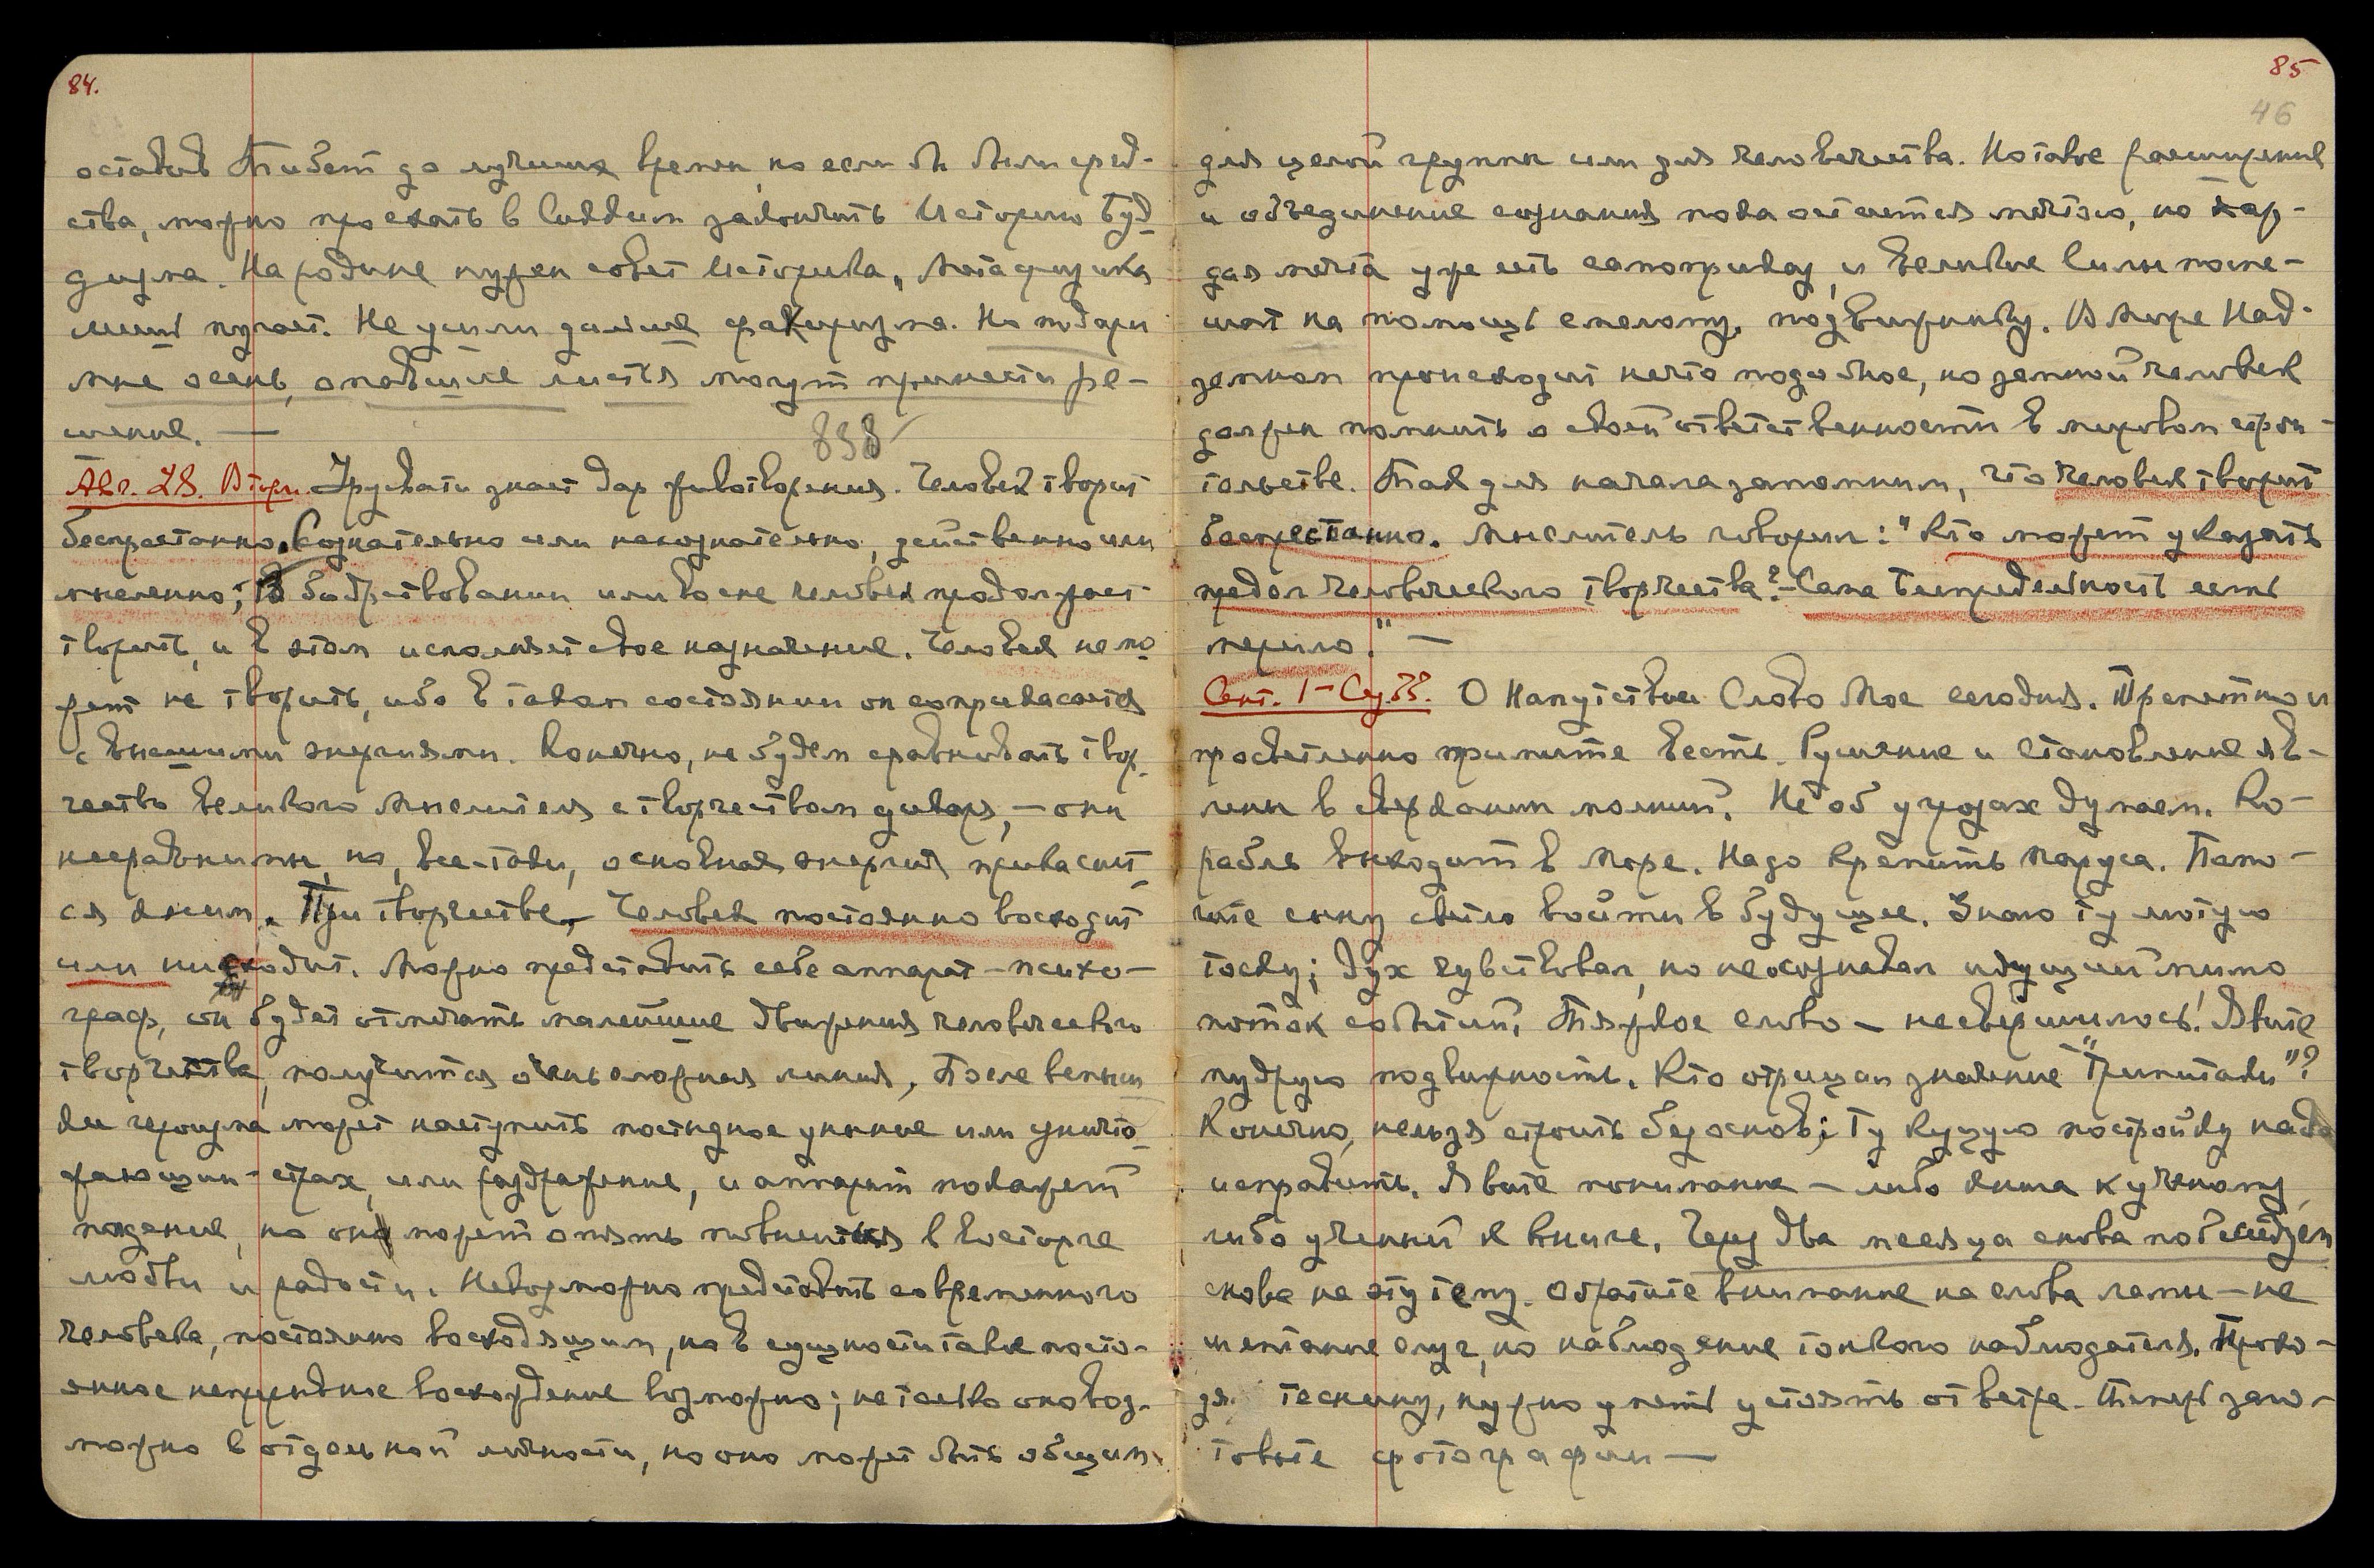 84.
оставив Тибет до лучших времен, но если бы были сред-
ства, можно проехать в Сикким закончить Историю Буд-
дизма. На родине нужен совет Историка, Метафизика
лишь пугает. Не ушли дальше факиризма. Но подари
мне осень, опавшие листья могут принести ре-
шение. —
898
Авг. 28. Вторн. Урусвати знает дар животворения. Человек творит
беспрестанно. Сознательно или несознательно, действенно или
мысленно; В бодрствовании или во сне человек продолжает
творить, и в этом исполняет свое назначение. Человек не мо-
жет не творить, ибо в таком состоянии он соприкасается
с высшими энергиями. Конечно, не будем сравнивать твор-
чество великого Мыслителя с творчеством дикаря, — они
несравнимы, но, все-таки, основная энергия прикасает-
ся к ним. При творчестве, Человек постоянно восходит
или нисходит. Можно представить себе аппарат — психо-
граф, он будет отмечать малейшие движения человеческого
творчества, получится очень сложная линия, После вспыш-
ки героизма может наступить постыдное уныние или уничто-
жающий страх, или раздражение, и аппарат покажет
падение, но он может опять повыситься в восторге
любви и радости. Невозможно представить современного
человека, постоянно восходящим, но в сущности такое посто-
янное непрерывное восхождение возможно; не только оно воз-
можно в отдельной личности, но оно может быть общим
85
46
для целой группы или для человечества. Но такое расширение
и объединение сознания пока остается мечтою, но каж-
дая мечта уже есть самоприказ, и Великие Силы поспе-
шат на помощь смелому, подвижнику. В Мире Над-
земном происходит нечто подобное, но земной человек
должен помнить о своей ответственности в мировом строи-
тельстве. Так для начала запомним, что человек творит
беспрестанно. Мыслитель говорил: "Кто может указать
предел человеческого творчества? — Сама Беспредельность есть
мерило." —
Сент. 1 — Суб. О Напутствии Слово Мое сегодня. Трепетно и
просветленно примите весть. Рушение и становление яв-
лены в сверкании молний. Не об угрозах думаем. Ко-
рабль выходит в Море. Надо крепить паруса. Помо-
гите сыну светло войти в будущее. Знаю ту лютую
тоску; дух чувствовал, но не осознавал идущий мимо
поток событий. Тяжкое слово — не свершилось! Явите
мудрую подвижность. Кто отрицал значение "Трипитаки"?
Конечно, нельзя строить без основ; ту куцую постройку надо
исправить. Явите понимание — либо книга к ученому,
либо ученый к книге. Через два месяца снова побеседуем
снова на эту тему. Обратите внимание на слова ламы — не
шептание слуг, но наблюдение тонкого наблюдателя. Прохо-
дя теснину, нужно уметь устоять от ветра. Теперь заго-
товьте фотографии —